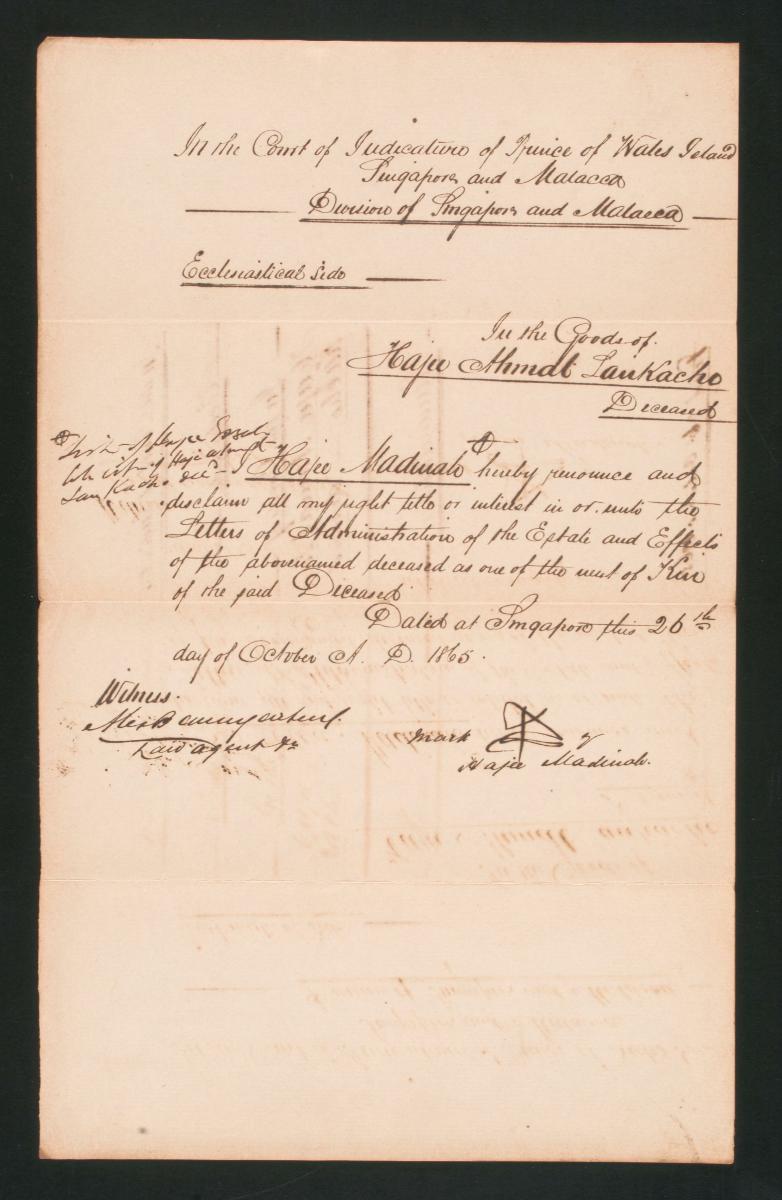 In the Court of Judicature of Prince of Wales Island
Singapore and Malacca
Division of Singapore and Malacca
Ecclesiastical Side
In the Goods of
Hajee Ahmat Lankacho
Deceased
of Hajee
of Hajee Ahmat
I Hajee Madinah hereby renounce and
disclaim all my right title or interest in or unto the
Letters of Administration of the Estate and Effects
of the abovenamed deceased as one of the next of Kin
of the said Deceased
Dated at Singapore this 26th
day of October A. D. 1865.
Witness.
Law agent &c
mark of
Hajee Madinah.